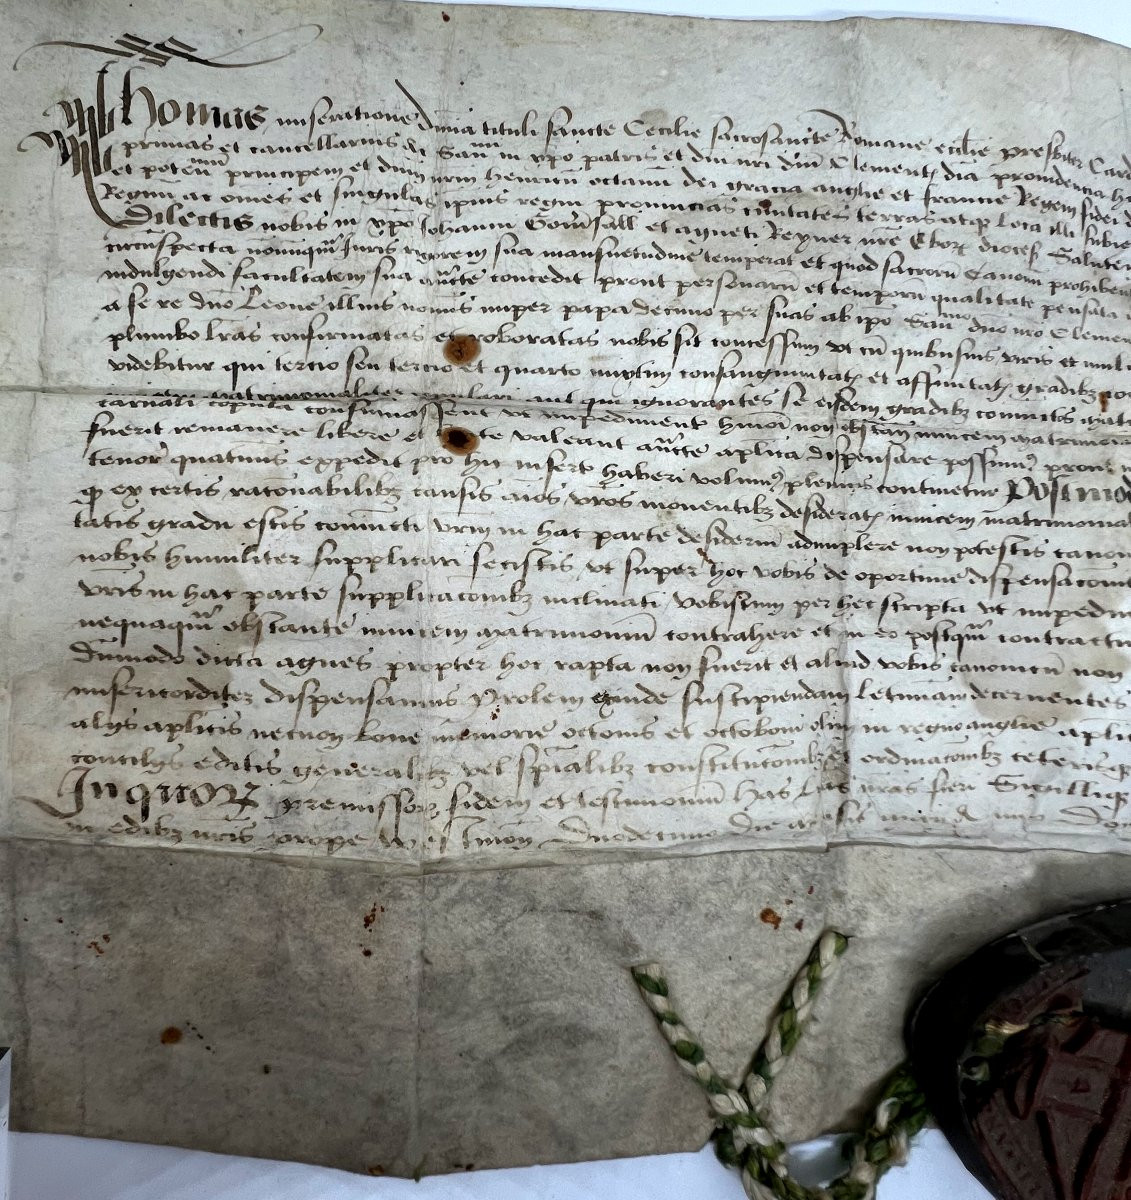 Thomas miseratione divina tituli sancte Cecilie sacrosancte Romane ecclie presbiter Card
primas et cancellarius Sanmi in xpo patris et dni nri dni Clement divina providencia
et potenmu principem et dnm nrm henricu octavu dei gracia anglie et Francie Regem fidei d
Regnu ac omes et singulas ipius regni provincias civitates terras atq loca illi subie
Dilectis nobis in xpo Johanni Gomsall et agneti Reyner nre Ebor dioces Salutem
circuspecta nonnuqm Juris rigorem sua mansuetudine temperat et quod sacroru Canonu prohibent
indulgendi facultatem sua aucte concedit prout personaru et temporu qualitate pensata
a se re dno Leone illius nominis nuper papa decimo per suas ab ipo Sanmo dno nro Clemen
plumbo lras confirmatas et roboratas nobis sit concessum ut cu quibusvis viris et muli
videbitur qui tercio seu tercio et quarto mixtim consanguinitatis et affinitatis gradibz
matrimonialiter copulari aut qui ignorantes se eisdem gradibz coniunctos mat
carnali copula consumassent ut impedimento hmoi non obstan invicem matrimoni
fuerit remanere libere et licite valeant aucte aplica dispensare possumus prout
tenor quatinus expedit pro hic insert haberi volumus plenius continetur Postmod
q ex certis racionabilibz causis aios vros moventibz desideratis invicem matrimonial
tatis gradu estis coniuncti vrm in hac parte desideriu adimplere non potestis canon
nobis humiliter supplicari fecistis ut super hoc vobis de oportune dispensacois
vris in hac parte supplicacoibz inclinati vobiscum per hec scripta ut impedim
nequaqm obstante invicem matrimoniu contrahere et in eo postqm contractu
Dumodo dicta agnes propter hoc rapta non fuerit et aliud vobis canonicu non
misericorditer dispensamus Prolem exinde suscipiendam letimam decernentes
alijs aplicis necnon bone memorie octonis et octoboni olim in regno anglie aplic
concilijs editis generalibz vel spialibz constitucoibz et ordinacoibz ceterisq
In quor premissor fidem et testimoniu has lras nras fieri Sigilliq
in edibz nris prope westmon Duodecimo die